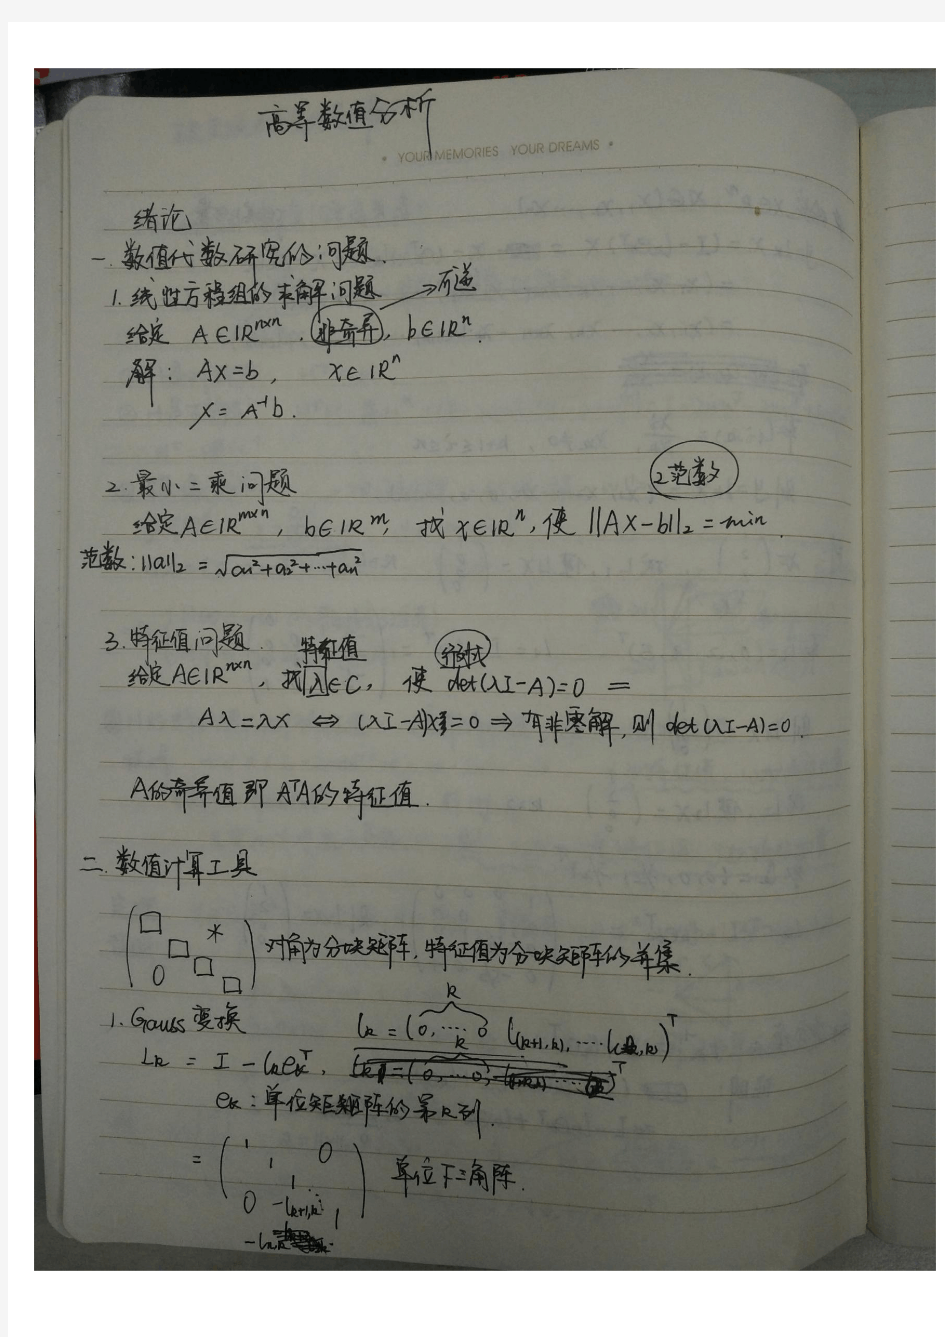 高等数值分析
• YOUR MEMORIES YOUR DREAMS •
绪论
一. 数值代数研究的问题.
1. 线性方程组的求解问题 → 可逆
给定 A∈IR^{n×n}, 非奇异, b∈IR^n.
解: AX=b, X∈IR^n
X=A^{-1}b.
2. 最小二乘问题 2范数
给定A∈IR^{m×n}, b∈IR^m, 找X∈IR^n, 使 ||AX-b||_2=min.
范数: ||a||_2 = √(a_1^2+a_2^2+…+a_n^2)
3. 特征值问题. 特征值 行列式
给定A∈IR^{n×n}, 找λ∈C, 使 det(λI-A)=0 =
Aλ=λX ⇔ (λI-A)X=0 ⇒ 有非零解, 则 det(λI-A)=0.
A的奇异值即A^TA的特征值.
二. 数值计算工具
* 0 对角为分块矩阵, 特征值为分块矩阵的并集.
k
1. Gauss变换 l_k = (0, … 0 l_{(k+1,k)}, … l_{(n,k)})^T
L_k = I - l_k e_k^T,
e_k: 单位矩阵的第k列.
= ( 1 1 0 1 0 -l_{k+1,k} 1 ) 单位下三角阵.
-l_{n,k}